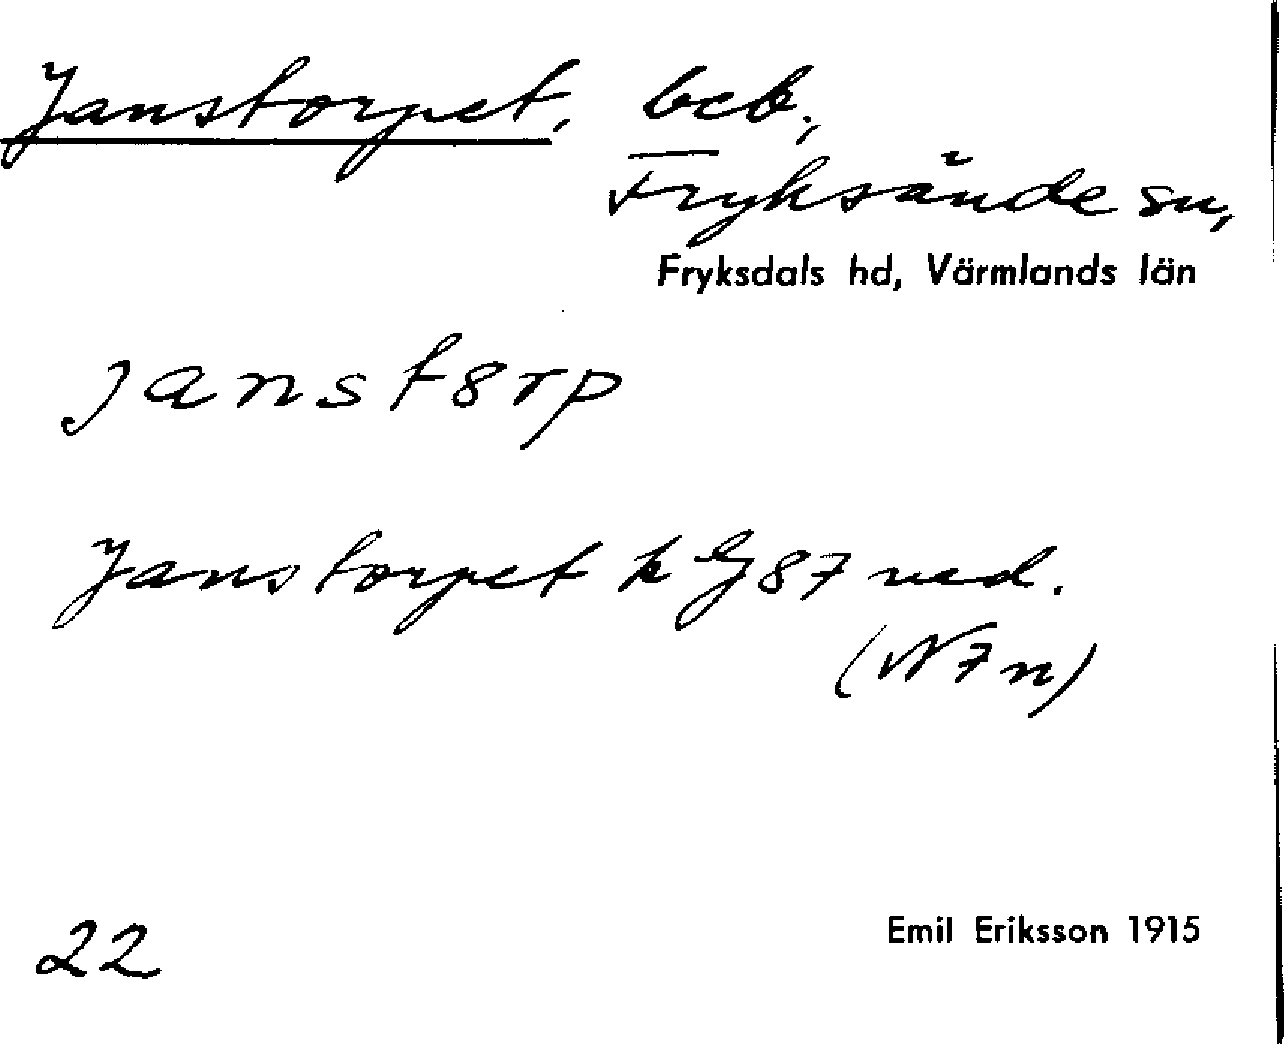 Janstorpet, beb.,
Fryksände sn,
Fryksdals hd, Värmlands län
janst8rp
Janstorpet k Gj 87 ned.
(N7n)
22
Emil Eriksson 1915